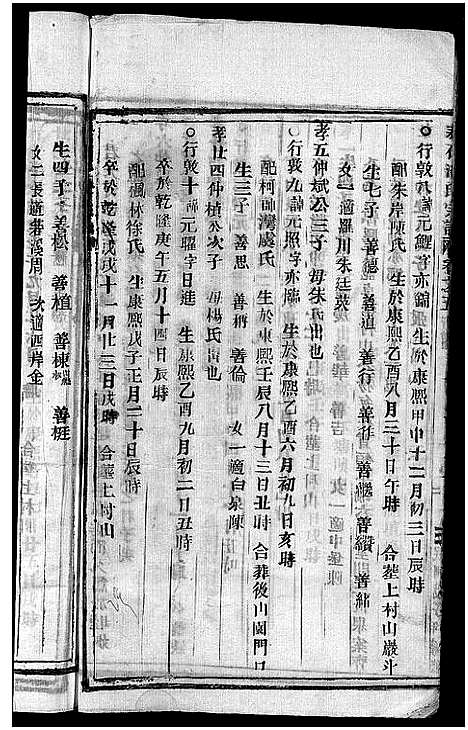 ○行敦八諱元鯉字亦鱅 生於康熙甲申十二月初三日辰時
配朱岸陳氏 生於康熙乙酉八月三十日午時 合葬上村山巖斗
生七子 善德 善巡 善行 善繼 善纘 善紼
女一適羅川朱廷
孝五仲斌公三子 母朱西出也
○行敦九諱元照字亦臨 生於康熙乙酉六月初九日亥時
配柯灣虞氏 生於康熙壬辰八月十三日丑時 合葬後山園門口
生三子 善思 善栴 善倫 女一適白泉陳
孝廿四仲楨公次子 母楊氏出也
○行敦十諱元曜字日進 生康熙乙酉九月初二日丑時
卒於乾隆庚午五月十四日辰時
配楓林徐氏 生康熙戊子正月二十日辰時
卒於乾隆戊戌十一月廿三日戌時 合葬上村山
生四子 善松 善楦 善棟 善梃
女二長適帶溪周 次適西岸金